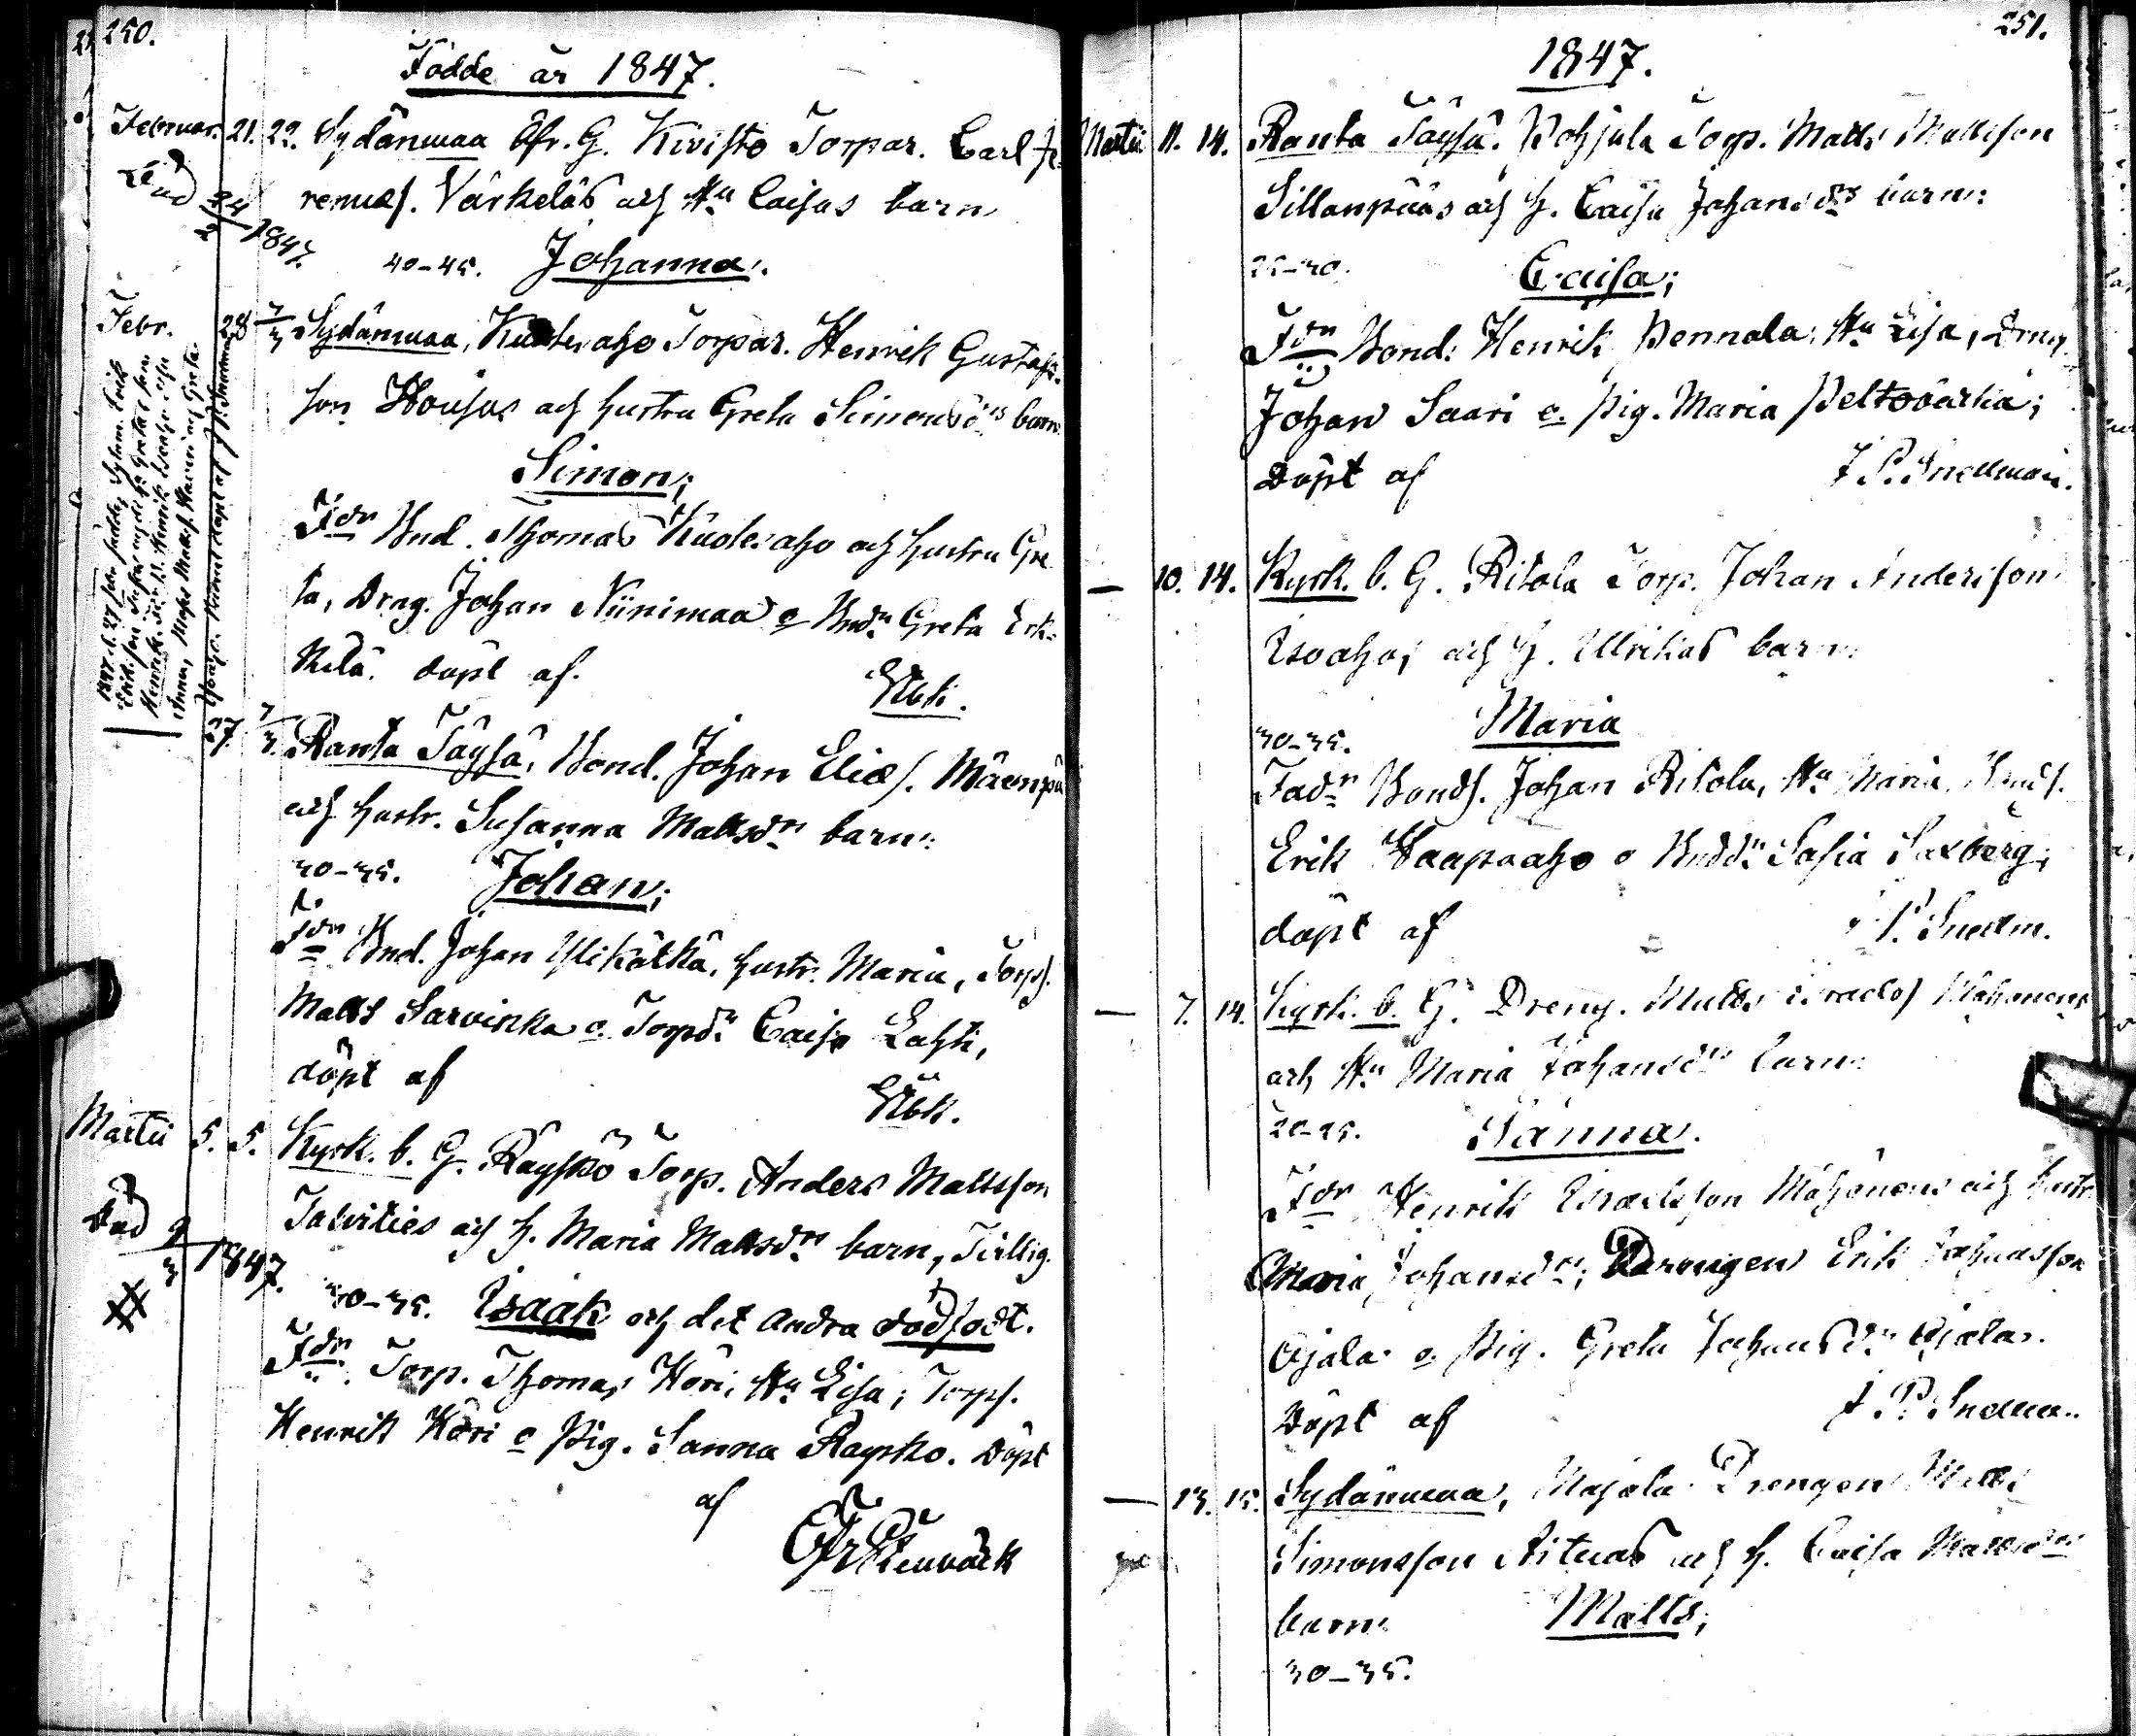 250.
Födde år 1847.
Februar. 21. 22. Sydänmaa Öfr. G. Kivistö Torpar. Carl Je-
remias. Värkeläs och Hu Caisas barn
Död 24/2 1847.
40-45. Johanna.
Febr. 28 7/3 Sydänmaa, Kuoles aho Torpar. Henrik Gustafs-
son Housus och hustru Greta Simonsdrs barn
Simon;
Fdr Bnd. Thomas Kuolesaho och hustru Gre
ta, Dräg. Johan Niinimaa o Bnds Greta Erk-
kilä. döpt af. Elbk.
27. 7/3. Ranta Töysä, Bond. Johan Elias. Mäenpä
och hustr. Susanna Mattsdrs barn:
30-35. Johan;
Fdr Bnd. Johan Ylikätkä, hustr. Maria, Torps.
Matts Sarvikka o. Torpdr Caisa Lahti,
döpt af
Elbk.
Martii 5. 5. Kyrk. b. G. Räyskö Torp. Anders Mattsson
Talvities och h. Maria Mattsdrs barn, Tvilling.
Död 9/3 1847.
30-35. Isaak och det andra dödfödt.
Fdr Torp. Thomas Köri, Hu Lisa; Torps.
Henrik Köri o Pig. Sanna Räyskö. Döpt
af
251.
1847.
Martii 11. 14. Ranta Töysä. Pohjala Torp. Matts Mattsson
Sillanpääs och h. Caisa Johansdrs barn:
25-30. Caisa;
Fdr Bond: Henrik Pennala, Hu Lisa, Dräng
Johan Saari o. Pig. Maria Peltovärkiä;
Döpt af J P. Snellman.
— 10. 14. Kyrk. b. G. Ritola Torp. Johan Andersson
Isoaho, och h. Ulrikas barn:
30-35. Maria
Fadr Bonds. Johan Ritola, Hu Maria, Bnds.
Erik Haapaaho o Bnddr Sofia Saxberg;
döpt af J P. Snellm.
— 7. 14. Kyrk. b. G. Dreng. Matts Israels Mähönens
och Hu Maria Johansdrs barn:
20-25. Sanna.
Fdr Henrik Israelsson Mähönens och hustr
Maria Johansdr; Drengen Erik Johansson
Ojala o Pig. Greta Johansdr Ojala.
Döpt af J. P. Snellm.
— 13. 15. Sydänmaa, Majala Drengen Matts
Simonsson Aituas och h. Caisa Mattsdrs
barn: Matts;
30-35.